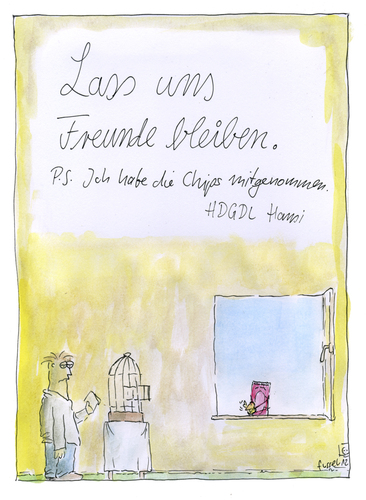 Lass uns
Freunde bleiben.
P.S. Ich habe die Chips mitgenommen.
HDGDL Hansi